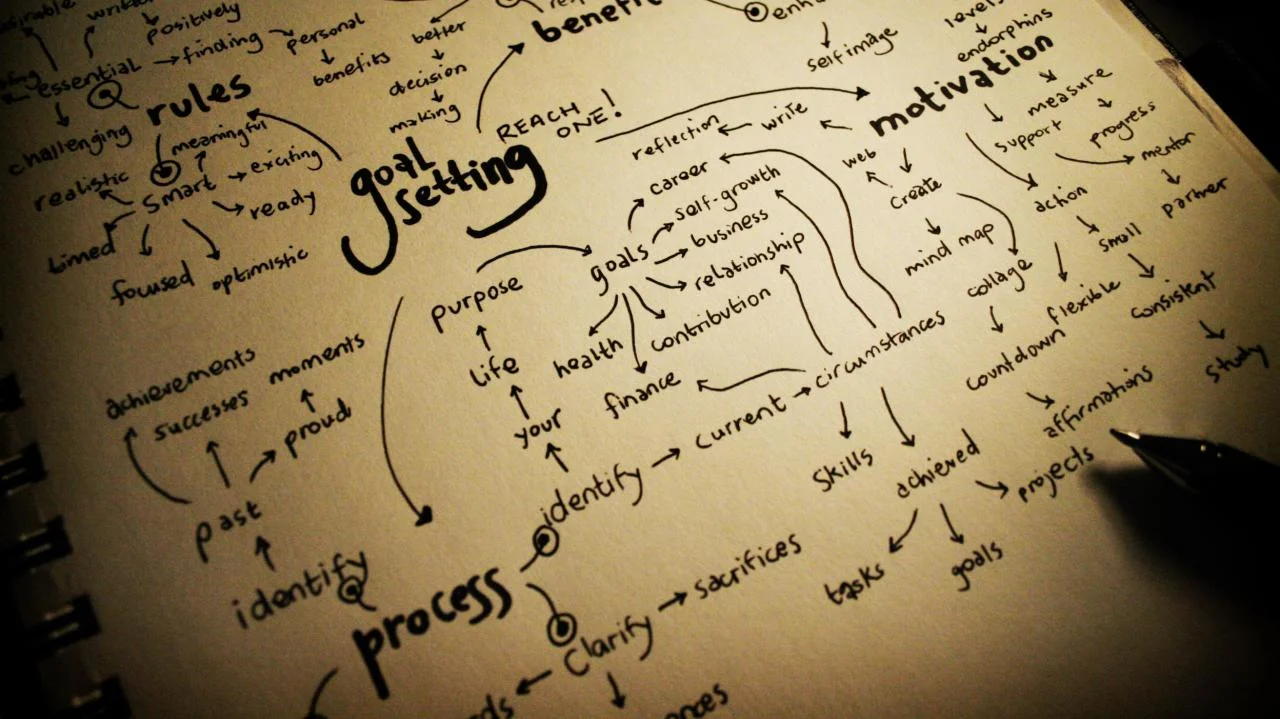 positively
personal
essential
finding
benefits
better
decision
making
self image
levels
endorphins
rules
challenging
meaningful
realistic
smart
exciting
ready
timed
focused
optimistic
goal
setting
REACH
ONE!
motivation
measure
progress
support
mentor
partner
reflection
write
web
create
mind map
collage
action
small
flexible
consistent
study
countdown
affirmations
career
self-growth
business
goals
relationship
contribution
health
finance
purpose
life
your
identify
current
circumstances
skills
achieved
projects
tasks
goals
achievements
successes
moments
proud
past
identify
process
clarify
sacrifices